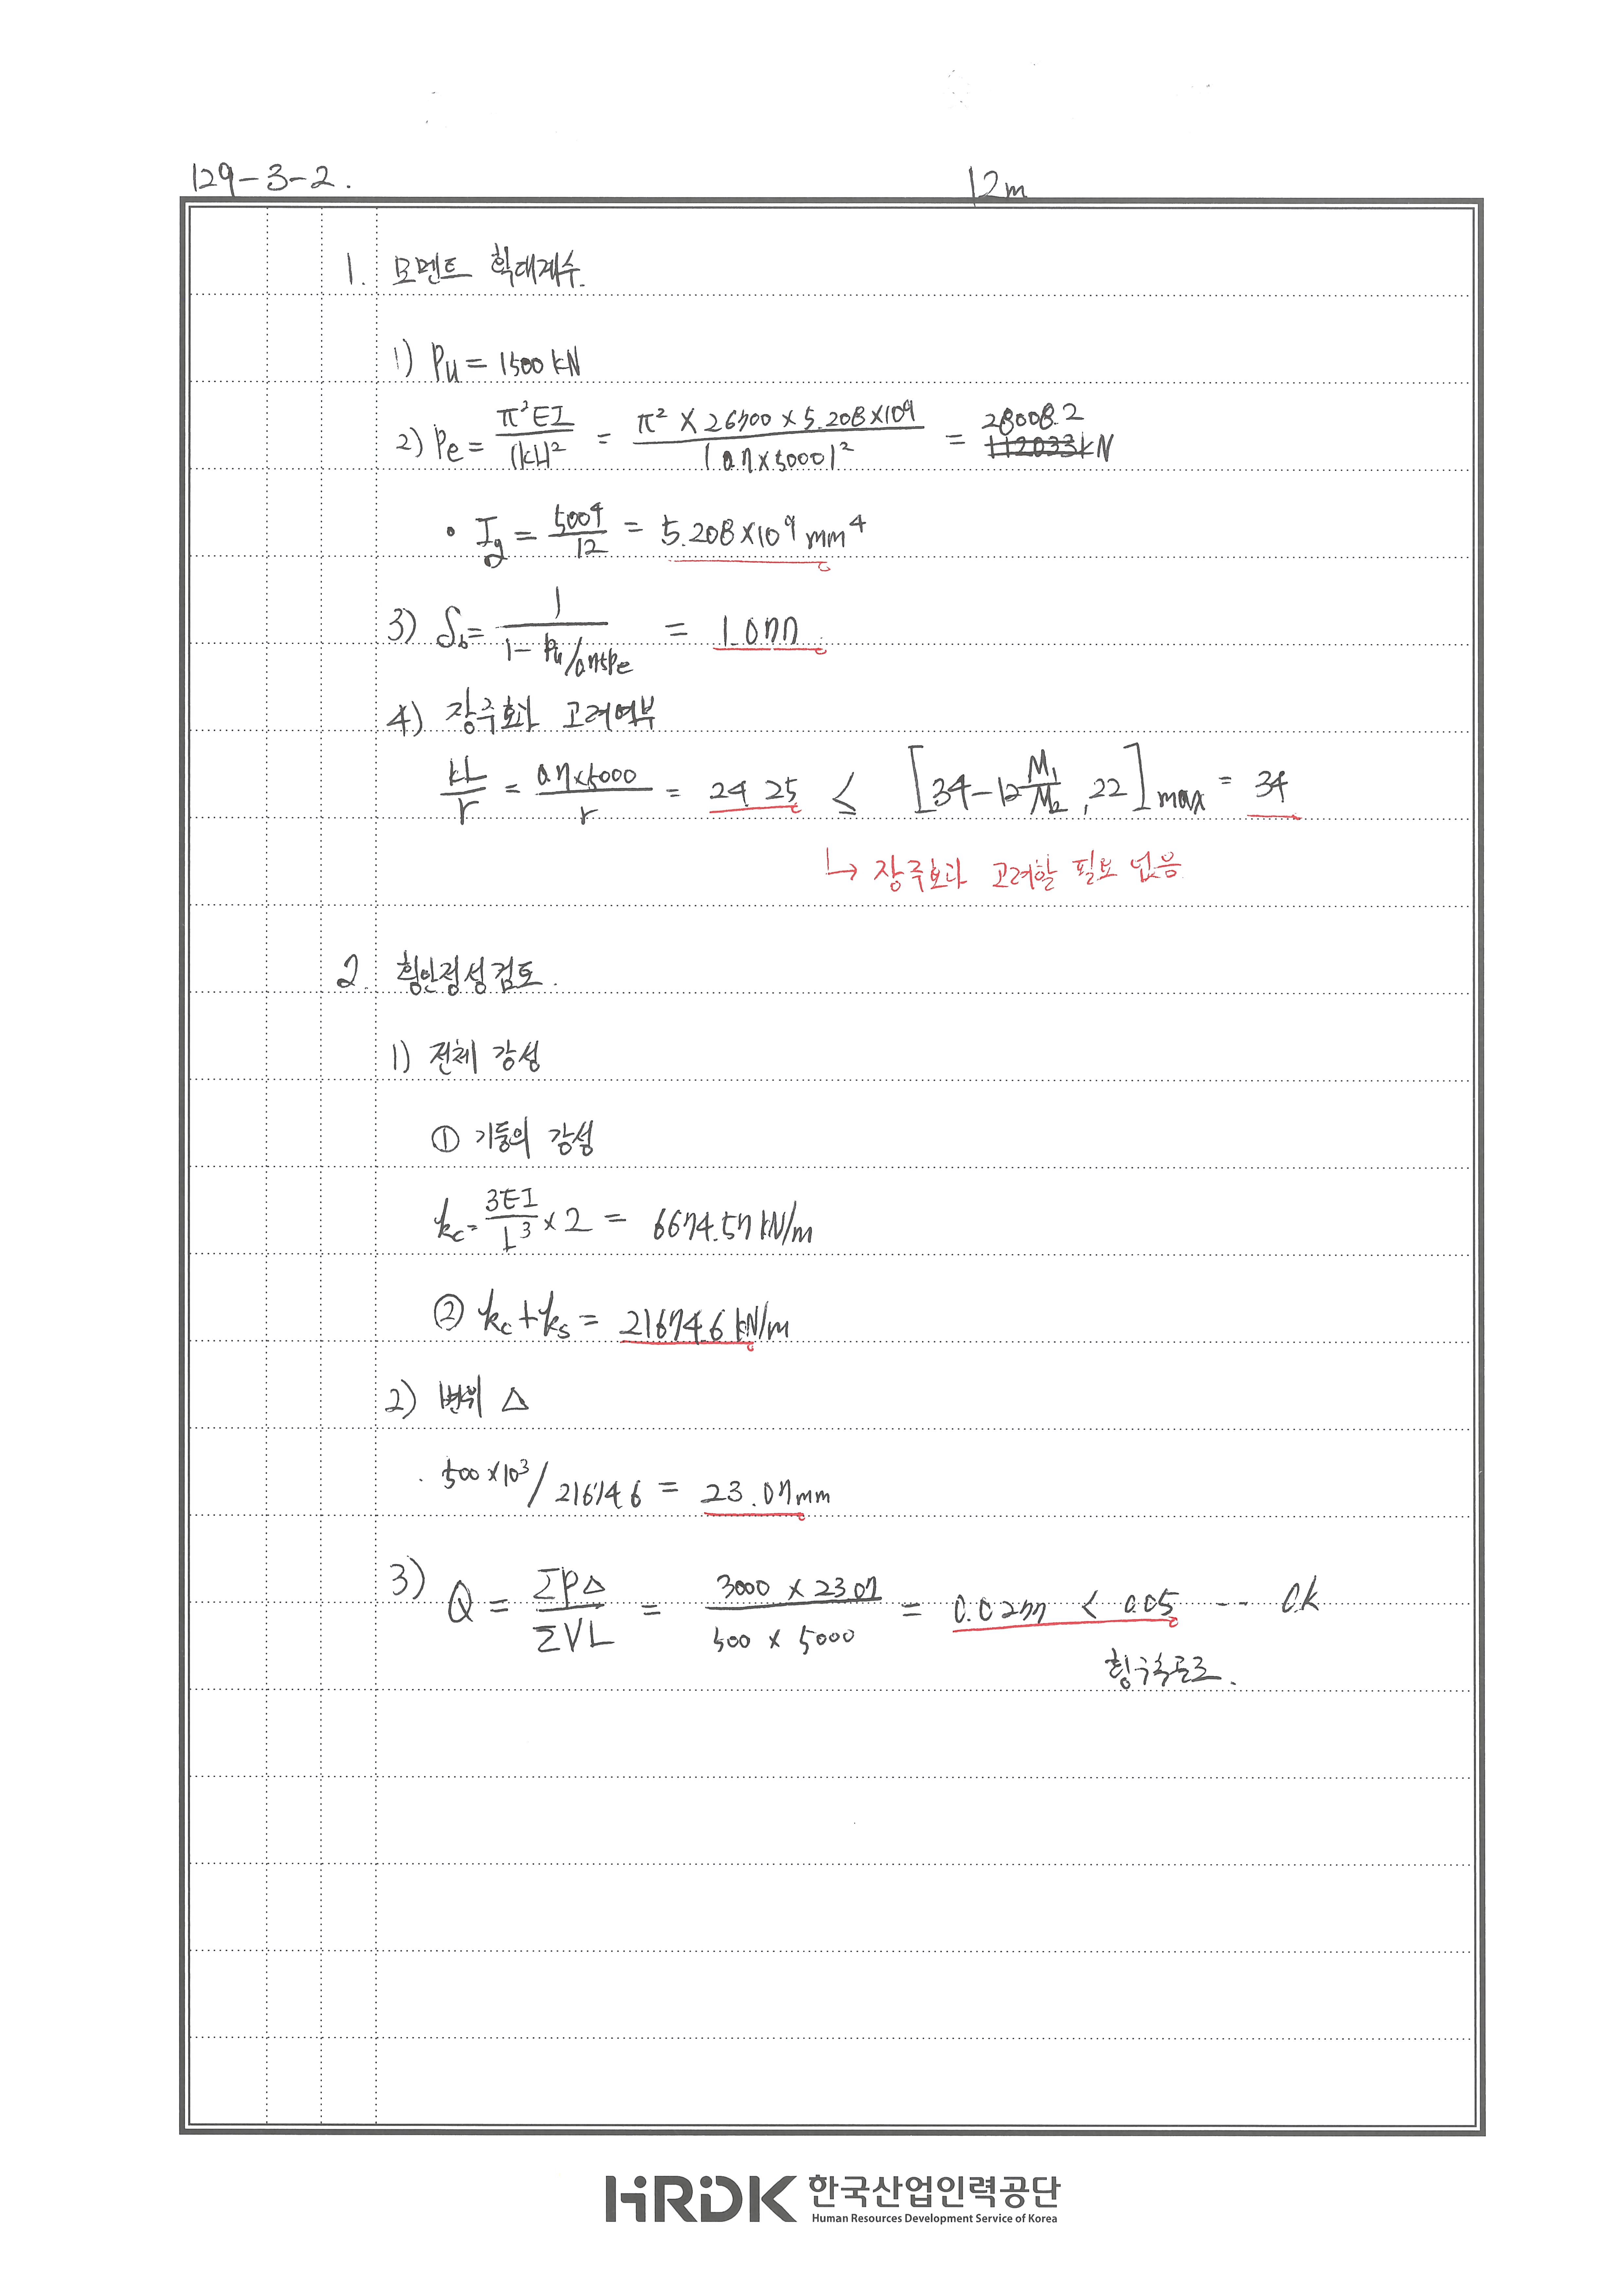 129-3-2.
12m
1. 모멘트 확대계수.
1) Pu = 1500 kN
2) Pe = π²EI / (kL)² = π² × 26700 × 5.208×10⁹ / (0.7×5000)² = 28008.2 kN
• Ig = 500⁴/12 = 5.208×10⁹ mm⁴
3) δb = 1 / (1 - Pu/0.75Pe) = 1.077
4) 장주효과 고려여부
kL/r = 0.7×5000/r = 24.25 ≤ [34-12 M₁/M₂, 22]max = 34
↳ 장주효과 고려할 필요 없음
2. 횡안정성검토.
1) 전체 강성
① 기둥의 강성
kc = 3EI/L³ × 2 = 6674.57 kN/m
② kc + ks = 21674.6 kN/m
2) 변위 △
· 500×10³ / 21674.6 = 23.07mm
3) Q = ΣP△ / ΣVL = 3000 × 23.07 / 500 × 5000 = 0.0277 < 0.05 --- O.K
횡구속골조.
HRDK 한국산업인력공단
Human Resources Development Service of Korea